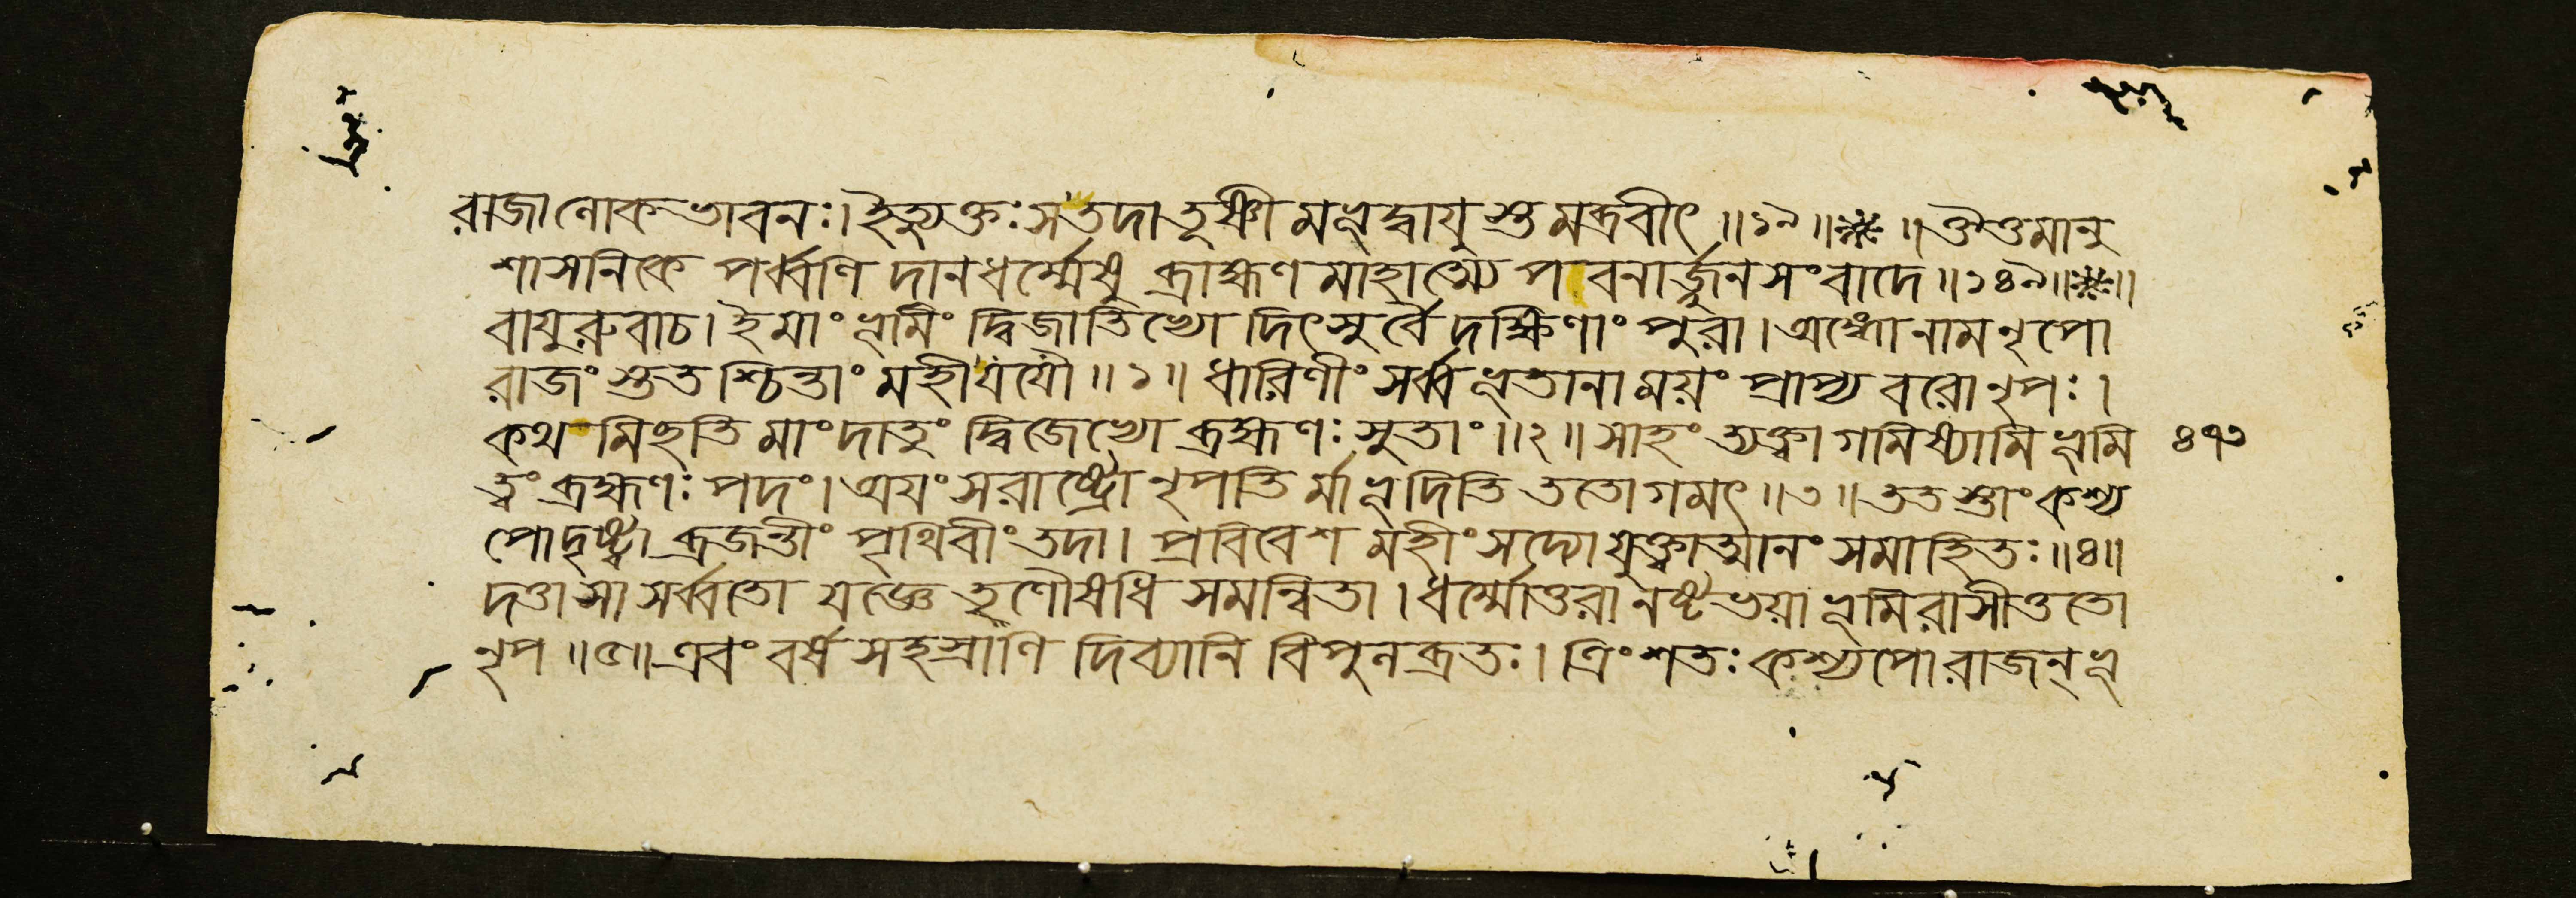 রাজা লোকভাবনঃ। ইত্যুক্তঃ স তদা তূষ্ণীমভূদ্বায়ুস্তমব্রবীৎ॥১৯॥❋॥ ঔত্তমানু
শাসনিকে পর্ব্বণি দানধর্ম্মেষু ব্রাহ্মণমাহাত্ম্যে পবনার্জ্জুনসংবাদে॥১৪৯॥❋॥
বায়ুরুবাচ। ইমাং ভূমিং দ্বিজাতিভ্যো দিৎসুর্ব্বৈ দক্ষিণাং পুরা। অঙ্গো নাম নৃপো
রাজংস্ততশ্চিন্তাং মহী যযৌ॥১॥ ধারিণীং সর্ব্বভূতানাময়ং প্রাপ্য বরো নৃপঃ।
কথমিছতি মাং দাতুং দ্বিজেভ্যো ব্রহ্মণঃ সুতাং॥২॥ সাহং ত্যক্ত্বা গমিষ্যামি ভূমি ৪৭৩
ত্বং ব্রহ্মণঃ পদং। অয়ং সরাষ্ট্রো নৃপতির্মাভূদিতি ততোগমৎ॥৩॥ ততস্তাং কশ্য
পো দৃষ্ট্বা ব্রজন্তীং পৃথিবীং তদা। প্রবিবেশ মহীং সদ্যো যুক্ত্বাত্মানং সমাহিতঃ॥৪॥
দত্তা সা সর্ব্বতো যজ্ঞে তৃণৌষধি সমন্বিতা। ধর্ম্মোত্তরা নষ্টভয়া ভূমিরাসীত্ততো
নৃপ॥৫॥ এবং বর্ষসহস্রাণি দিব্যানি বিপুলব্রতঃ। ত্রিংশতঃ কশ্যপো রাজন্ ভূ